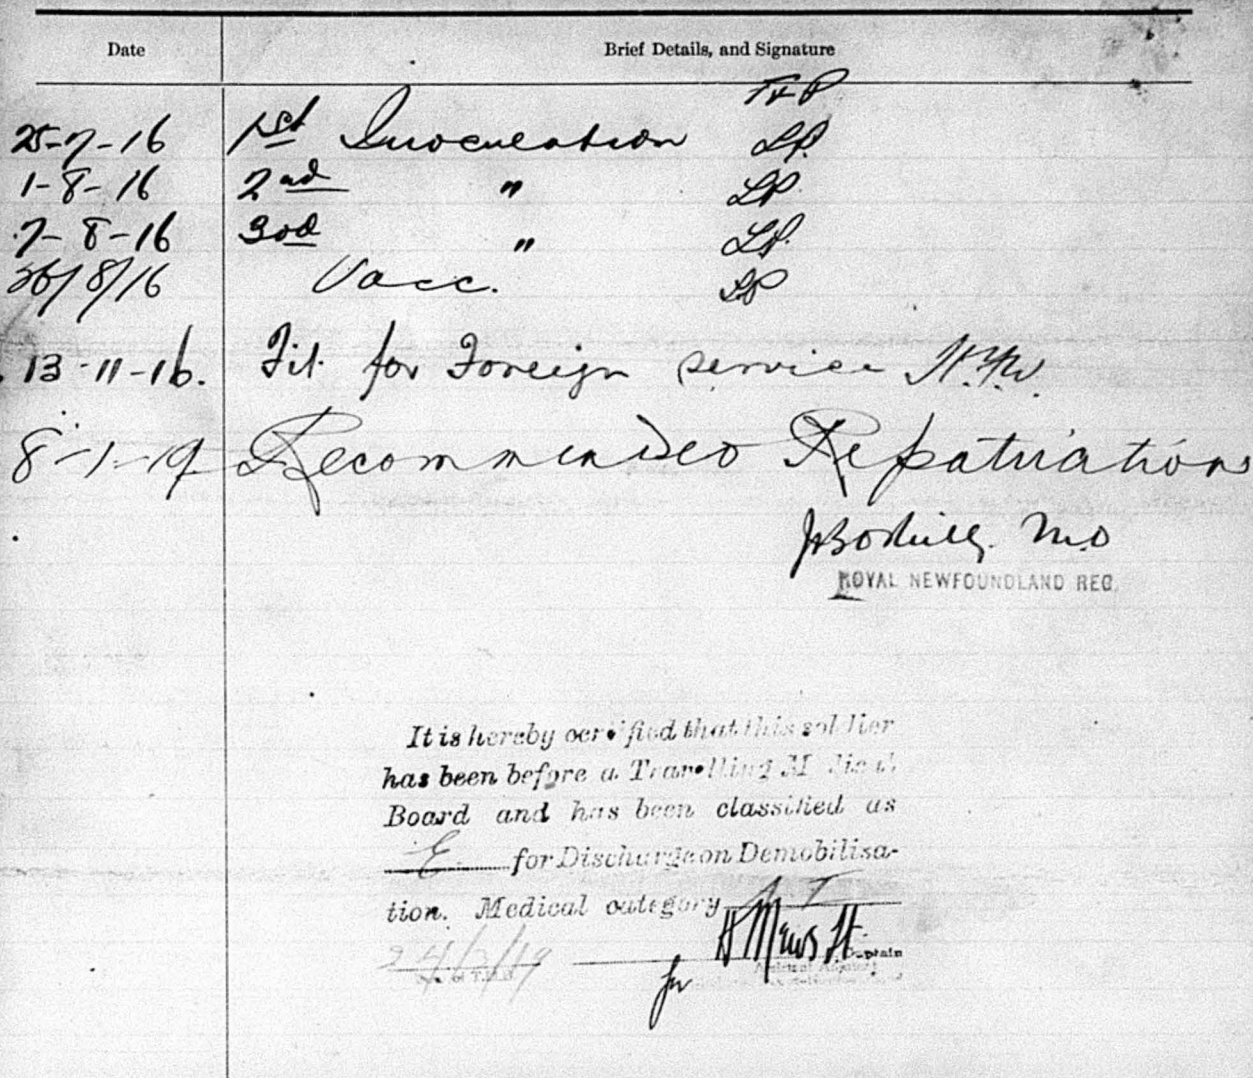 Date Brief Details, and Signature
25-7-16 1st Inoculation LP.
1-8-16 2nd " LP.
7-8-16 3rd " LP.
26/8/16 Vacc. LP
13-11-16. Fit for Foreign service
8-1-19 Recommended Repatriation
M.O
ROYAL NEWFOUNDLAND REG.
It is hereby certified that this soldier
has been before a Travelling Medical
Board and has been classified as
E for Discharge on Demobilisa-
tion. Medical category
H Mews Lt. Captain
for